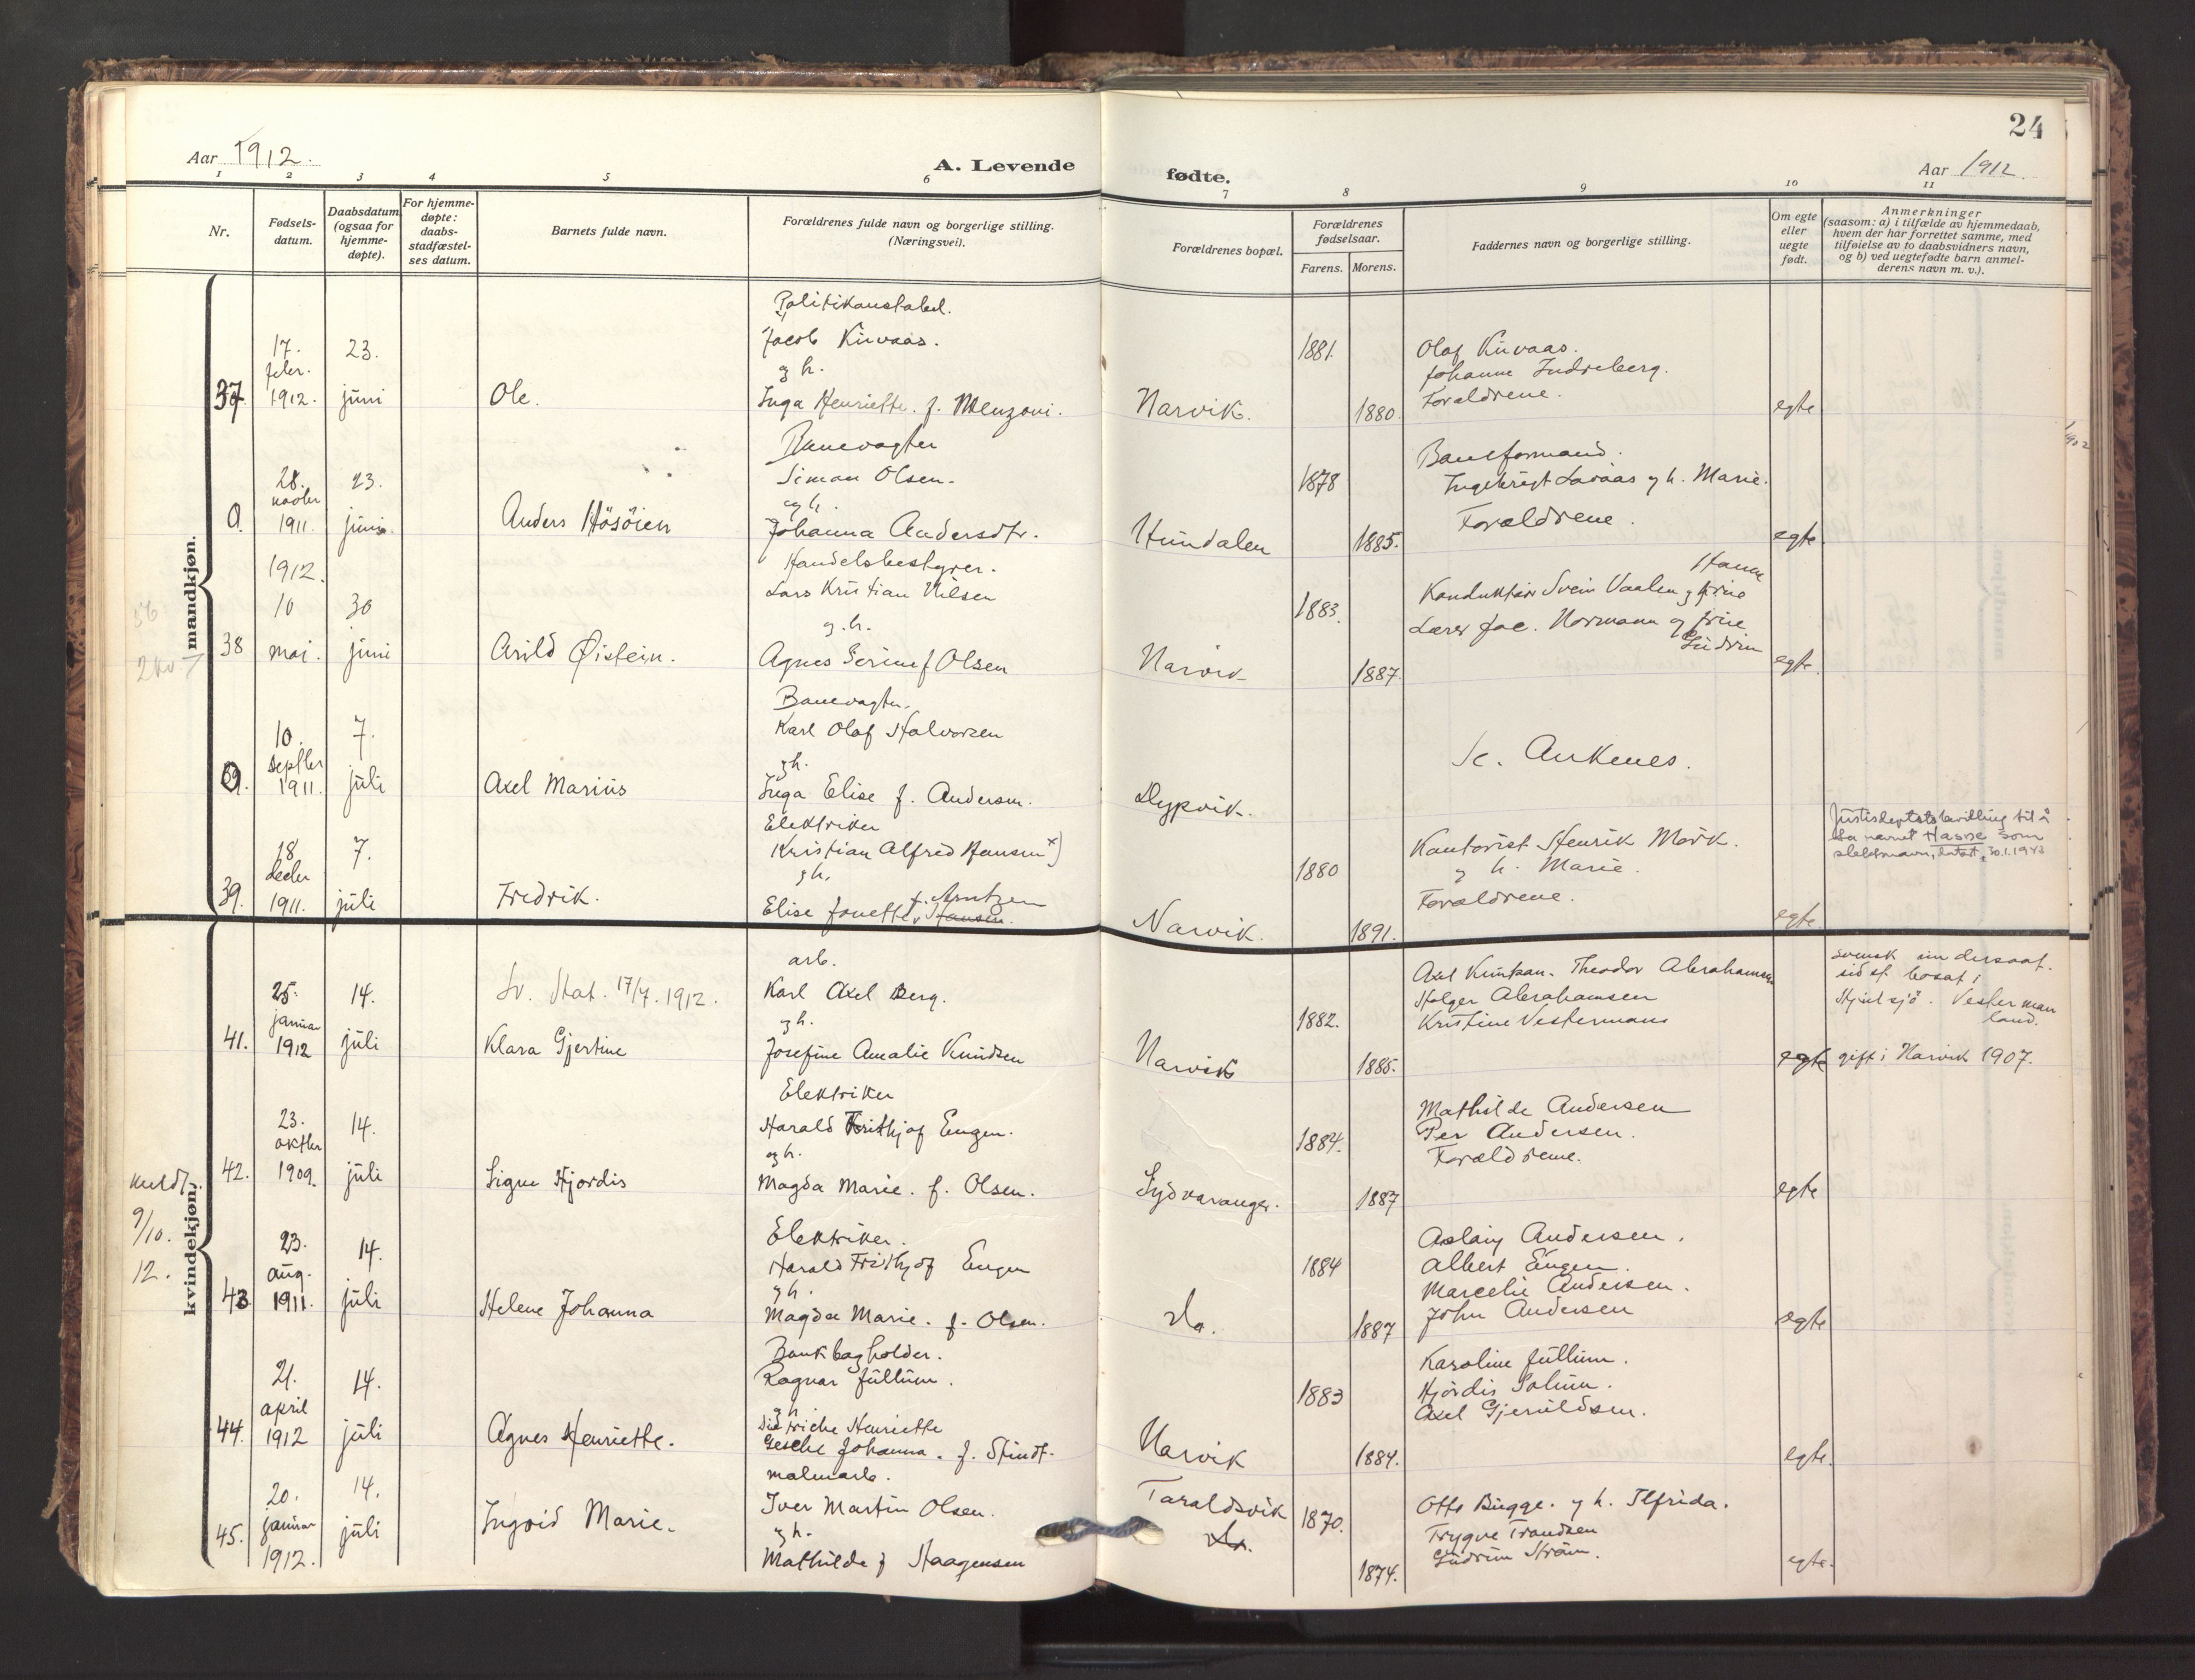 24
Aar 1912.
A. Levende
fødte.
Aar 1912
1 2 3 4 5 6 7 8 9 10 11
Nr.
Fødsels-
datum.
Daabsdatum
(ogsaa for
hjemme-
døpte).
For hjemme-
døpte:
daabs-
stadfæstel-
ses datum.
Barnets fulde navn.
Forældrenes fulde navn og borgerlige stilling.
(Næringsvei).
Forældrenes bopæl.
Forældrenes
fødselsaar.
Farens. Morens.
Faddernes navn og borgerlige stilling.
Om egte
eller
uegte
født.
Anmerkninger
(saasom: a) i tilfælde av hjemmedaab,
hvem der har forrettet samme, med
tilføielse av to daabsvidners navn,
og b) ved uegtefødte barn anmel-
derens navn m. v.).
mandkjøn.
37.
17.
febr.
1912.
23.
juni
Ole.
Politikonstabel.
Jacob Kirvaas.
g h.
Inga Henriette. f. Menzoni.
Narvik.
1881.
1880.
Olaf Kirvaas.
Johanne Indreberg.
Forældrene.
egte
0.
28.
novbr
1911.
23.
juni.
Anders Høsøien
Banevagter
Simon Olsen.
og h.
Johanna Andersdtr.
Hundalen
1878
1885.
Baneformand.
Ingebrigt Lavaas g h. Marie.
Forældrene.
egte
38
1912.
10
mai.
30
juni
Arild Øistein.
Handelsbestyrer.
Lars Kristian Nilsen
g. h.
Agnes Serine f Olsen
Narvik
1883.
1887.
Hanna
Konduktør Svein Vaalen g frue
Lærer Jac. Normann og frue
Gudrun
egte.
0.
10.
septbr
1911.
7.
juli
Axel Marius
Banevagter.
Karl Olaf Halvorsen
g h.
Inga Elise f. Andersen.
Dypvik.
Se. Ankenes.
39.
18
decbr
1911.
7.
juli
Fredrik.
Elektriker
Kristian Alfred Hansen x)
g h.
f. Arntzen
Elise Jonette, Hansen.
Narvik.
1880
1891.
Kontorist Henrik Mørk.
g h. Marie.
Forældrene.
egte
Justisdeptets bevilling til å
ta navnet Hasse som
slektsnavn, datert, 30.1.1943
kvindekjøn.
41.
25.
januar
1912
14.
juli
Sv. Stat. 17/7. 1912.
Klara Gjertine
arb.
Karl Axel Berg.
g h.
Josefine Amalie Knudsen
Narvik
1882.
1885.
Axel Knutsen. Theodor Abrahamsen
Holger Abrahamsen
Kristine Vestermans
egte
svensk undersaat.
sidst bosat i
Vesterman
land.
gift i Narvik 1907.
42.
23.
oktbr
1909.
14.
juli
Signe Hjordis
Elektriker
Harald Frithjof Eugen.
og h.
Magda Marie. f. Olsen.
Sydvaranger.
1884.
1887
Mathilde Andersen
Per Andersen.
Forældrene.
egte
9/10.
12.
43
23.
aug.
1911.
14.
juli
Helene Johanna
Elektriker.
Harald Frithjof Eugen
g h.
Magda Marie. f. Olsen.
do.
1884
1887
Aslaug Andersen.
Albert Eugen.
Marcelie Andersen.
John Andersen
egte
44.
21.
april
1912
14.
juli
Agnes Henriette.
Bankbogholder.
Ragnar Jullum.
g h.
Didriche Henriette
Gesche Johanna. f. Stindt.
Narvik
1883
1884.
Karoline Jullum.
Hjørdis Solum.
Axel Gjeruldsen.
egte.
45.
20.
januar
1912.
14.
juli
Ingvid Marie.
malmarb.
Iver Martin Olsen.
g h.
Mathilde f Haagensen
Taraldsvik
do.
1870.
1874.
Otto Bugge. g h. Ilfrida.
Trygve Trondsen
Gudrun Strøm.
egte.